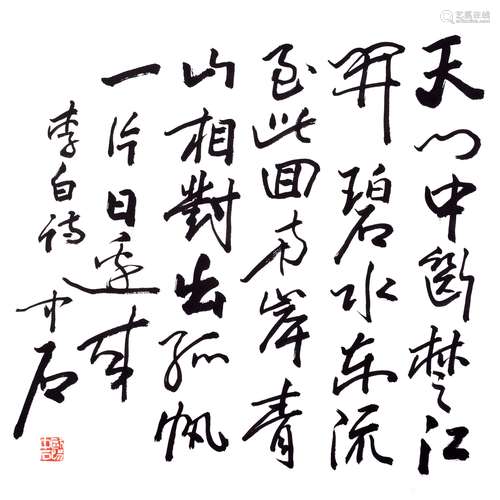 天门中斷楚江
開碧水东流
至此回两岸青
山相對出孤帆
一片日邊来
李白诗
中石
艺狐在线